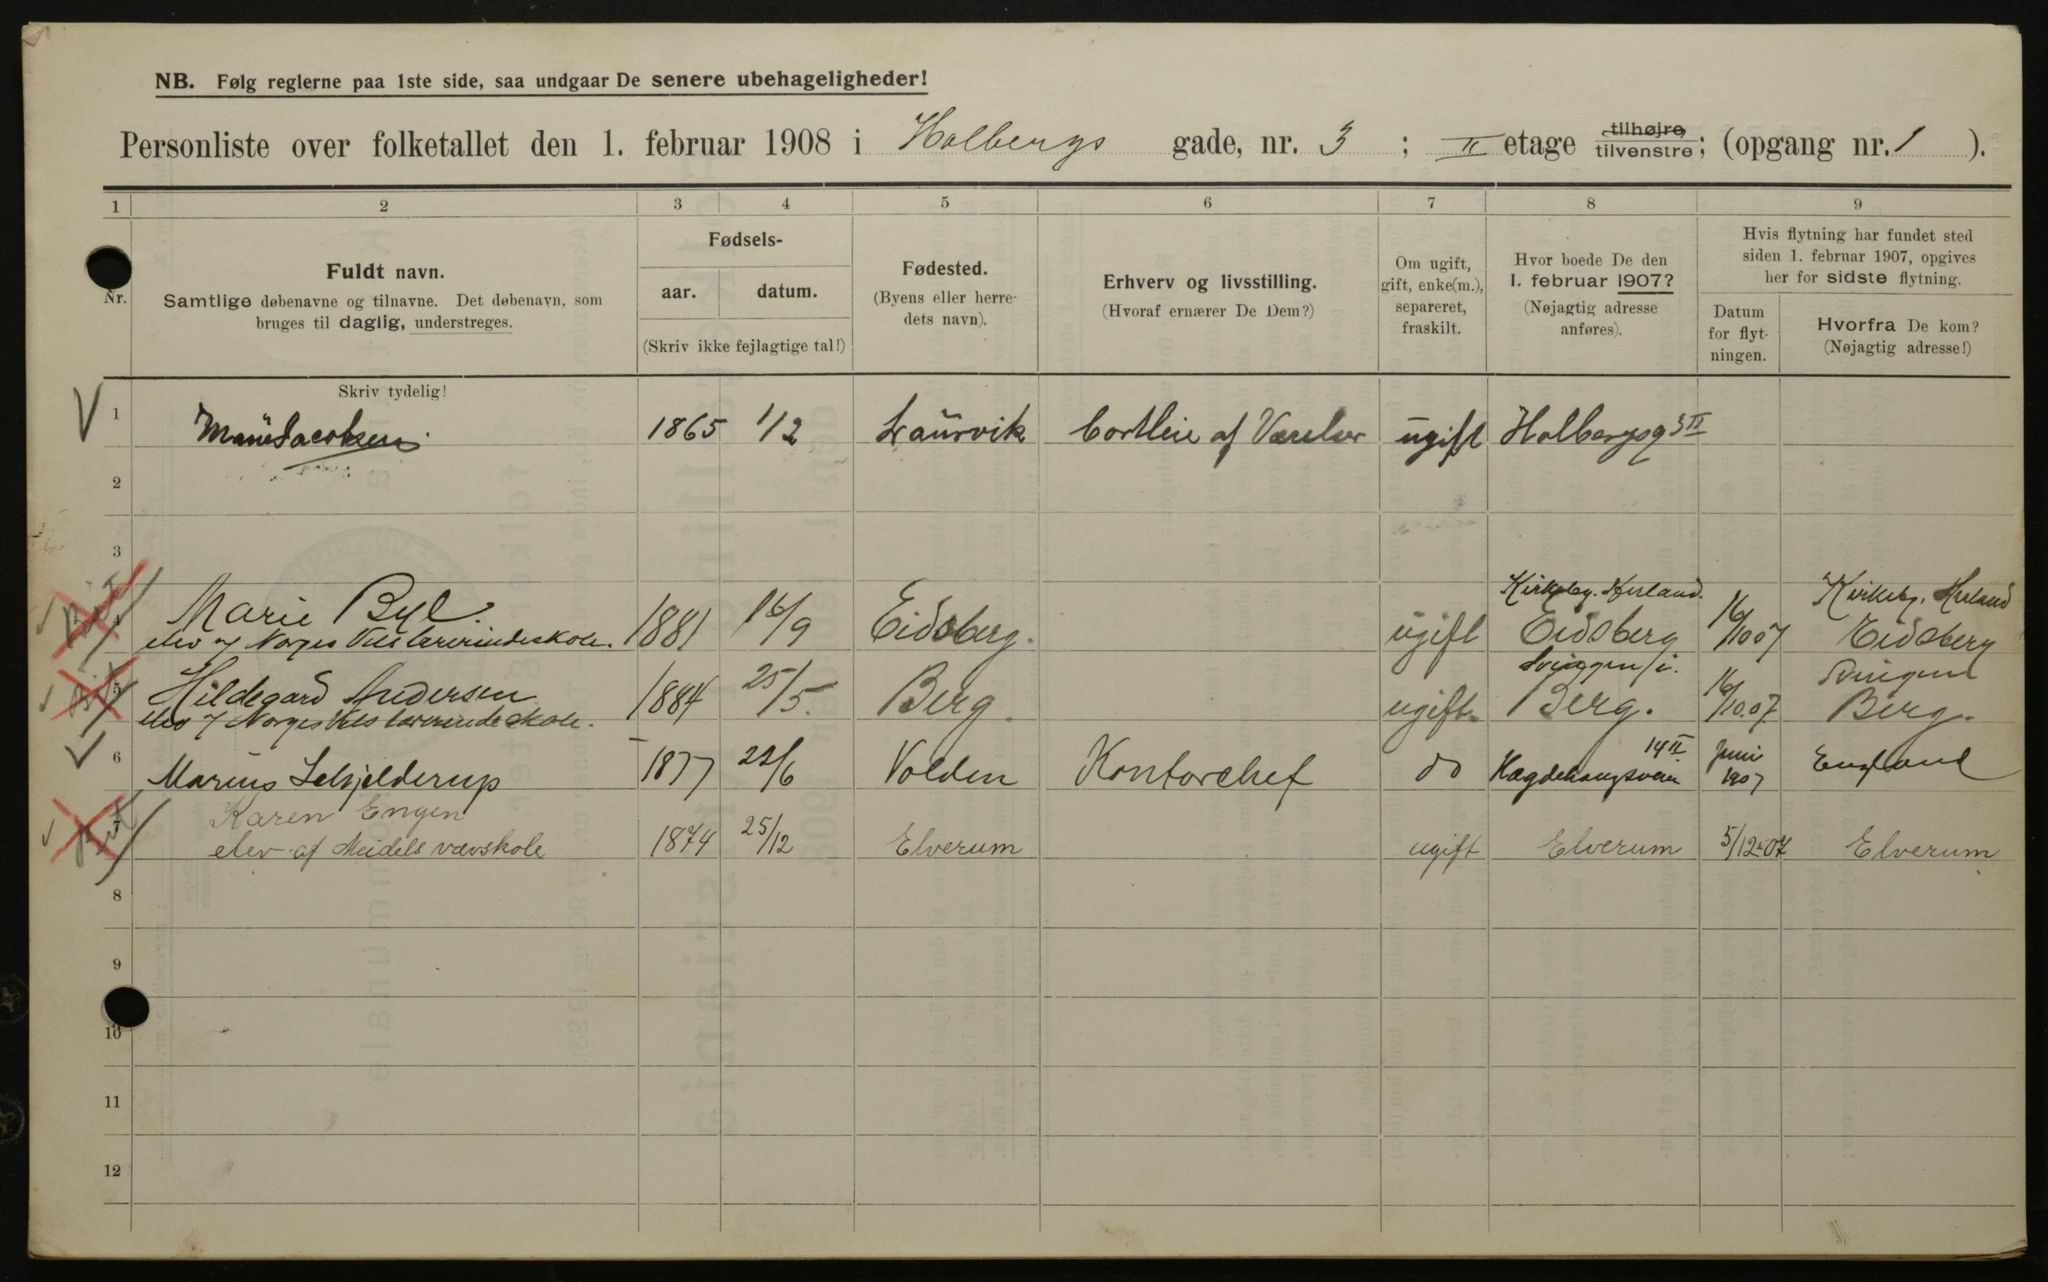 NB. Følg reglerne paa 1ste side, saa undgaar De senere ubehageligheder!
Personliste over folketallet den 1. februar 1908 i Holbergs gade, nr. 3 ; II etage tilhøjre tilvenstre; (opgang nr. 1 ).
1 2 3 4 5 6 7 8 9
Nr.
Fuldt navn.
Samtlige døbenavne og tilnavne. Det døbenavn, som
bruges til daglig, understreges.
Skriv tydelig!
Fødsels-
aar. datum.
(Skriv ikke fejlagtige tal!)
Fødested.
(Byens eller herre-
dets navn).
Erhverv og livsstilling.
(Hvoraf ernærer De Dem?)
Om ugift,
gift, enke(m.),
separeret,
fraskilt.
Hvor boede De den
1. februar 1907?
(Nøjagtig adresse
anføres).
Hvis flytning har fundet sted
siden 1. februar 1907, opgives
her for sidste flytning.
Datum
for flyt-
ningen.
Hvorfra De kom?
(Nøjagtig adresse!)
1 Marie Jacobsen 1865 1/2 Laurvik Bortleie af Værelser ugift Holbergsg 3 II
2
3
4 Marie Byl. 1881 16/9 Eidsberg. ugift Kirkeby. Herland. Eidsberg 16/10 07 Kirkeby. Herland Eidsberg
elev af Norges lærerindeskole.
5 Hildegard Andersen 1884 25/5. Berg. ugift Svingen i. Berg. 16/10.07 Svingen Berg.
elev af Norges lærerindeskole.
6 Marius Schjelderup 1877 22/6 Volden Kontorchef do Hægdehaugsveien 14 II Juni 1907 England
7 Karen Engen
elev af Meidels vævskole 1874 25/12 Elverum ugift Elverum 5/12-07 Elverum
8
9
10
11
12